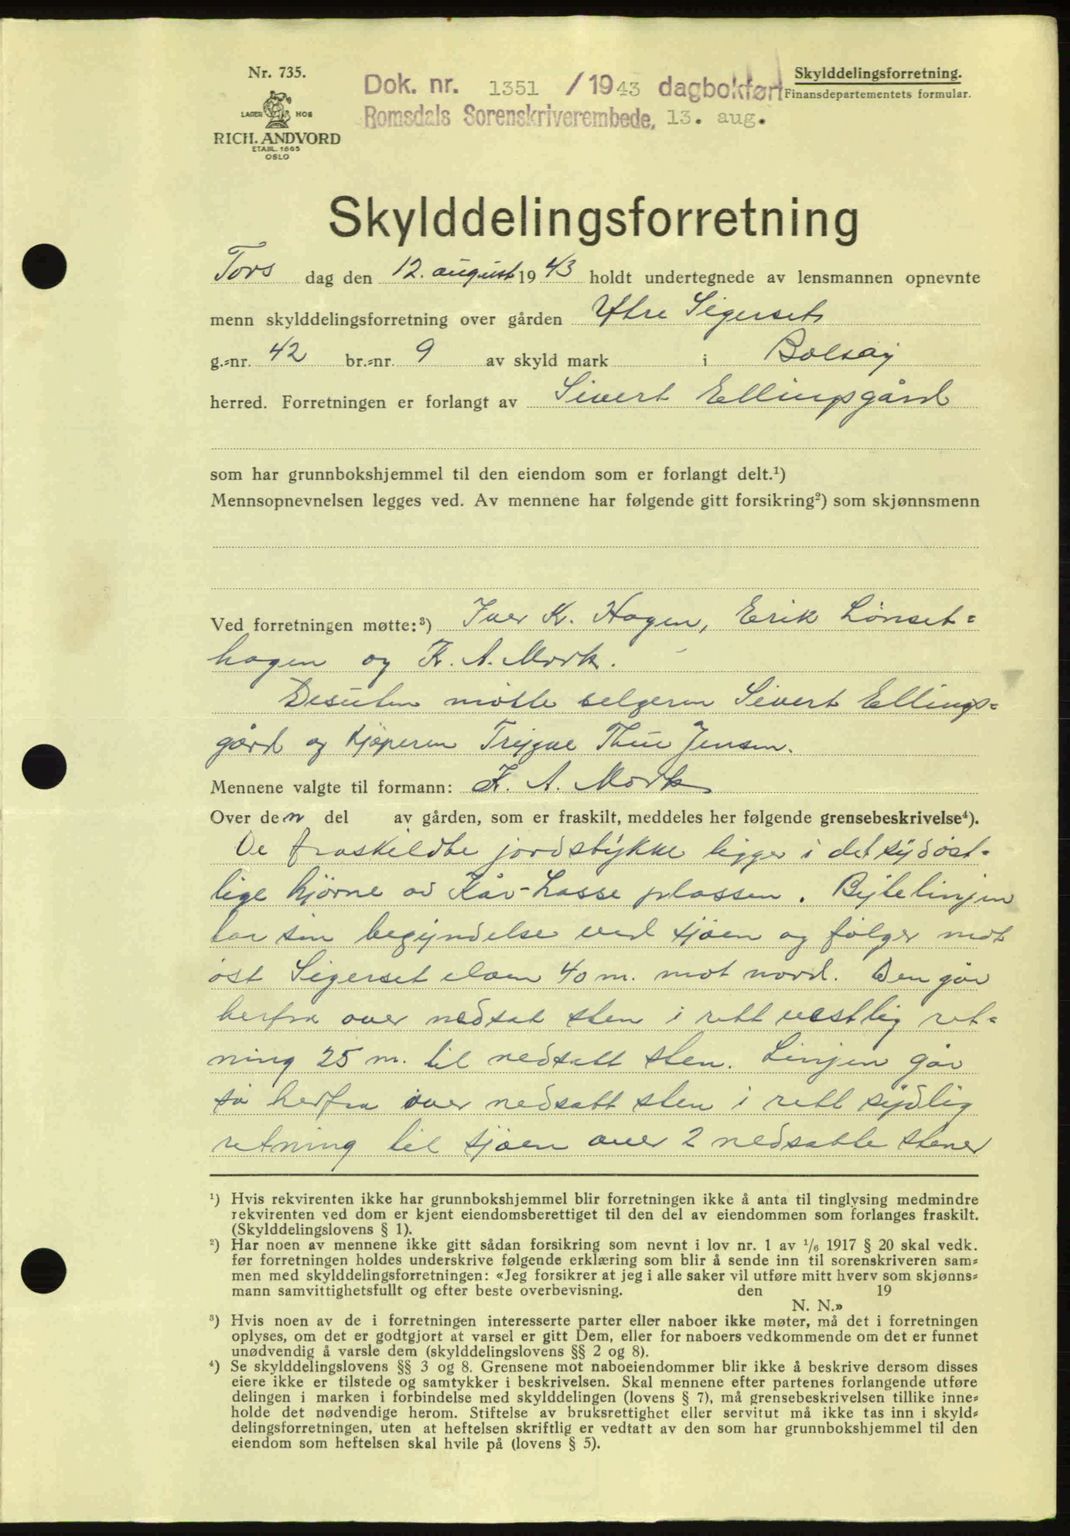 Nr. 735.
LAGER HOS
RICH. ANDVORD
ETABL. 1865
OSLO
Dok. nr. 1351 /1943 dagbokført
Romsdals Sorenskriverembede, 13. aug.
Skylddelingsforretning.
Finansdepartementets formular.
Skylddelingsforretning
Tors dag den 12. august 1943 holdt undertegnede av lensmannen opnevnte
menn skylddelingsforretning over gården Ytre Sigerset
g.=nr. 42 br.=nr. 9 av skyld mark i Bolsøy
herred. Forretningen er forlangt av Sivert Ellingsgård
som har grunnbokshjemmel til den eiendom som er forlangt delt.¹)
Mennsopnevnelsen legges ved. Av mennene har følgende gitt forsikring²) som skjønnsmenn
Ved forretningen møtte:³) Iver K. Hagen, Erik Lønset=
hagen og K. A. Mork.
Desuten møtte selgeren Sivert Ellings=
gård og kjøperen Trygve Thue Jensen.
Mennene valgte til formann: K. A. Mork
Over den del av gården, som er fraskilt, meddeles her følgende grensebeskrivelse⁴).
De fraskildte jordstykke ligger i det sydøst=
lige hjørne av Kår-Lasse plassen. Bytelinjen
har sin begyndelse ved sjøen og følger mot
øst Sigerset elven 40 m. mot nord. Den går
herfra over nedsat sten i rett vestlig ret=
ning 25 m. til nedsatt sten. Linjen går
så herfra over nedsatt sten i rett sydlig
retning til sjøen over 2 nedsatte stener
¹) Hvis rekvirenten ikke har grunnbokshjemmel blir forretningen ikke å anta til tinglysing medmindre
rekvirenten ved dom er kjent eiendomsberettiget til den del av eiendommen som forlanges fraskilt.
(Skylddelingslovens § 1).
²) Har noen av mennene ikke gitt sådan forsikring som nevnt i lov nr. 1 av ¹/₆ 1917 § 20 skal vedk.
før forretningen holdes underskrive følgende erklæring som blir å sende inn til sorenskriveren sam=
men med skylddelingsforretningen: «Jeg forsikrer at jeg i alle saker vil utføre mitt hverv som skjønns=
mann samvittighetsfullt og efter beste overbevisning. den 19
N. N.»
³) Hvis noen av de i forretningen interesserte parter eller naboer ikke møter, må det i forretningen
oplyses, om det er godtgjort at varsel er gitt Dem, eller for naboers vedkommende om det er funnet
unødvendig å varsle dem (skylddelingslovens §§ 2 og 8).
⁴) Se skylddelingslovens §§ 3 og 8. Grensene mot naboeiendommer blir ikke å beskrive dersom disses
eiere ikke er tilstede og samtykker i beskrivelsen. Skal mennene efter partenes forlangende utføre
delingen i marken i forbindelse med skylddelingen (lovens § 7), må grensebeskrivelsen tillike inne=
holde det nødvendige herom. Stiftelse av bruksrettighet eller servitut må ikke tas inn i skyld=
delingsforretningen, uten at heftelsen skriftlig er vedtatt av den som har grunnbokshjemmel til den
eiendom som heftelsen skal hvile på (lovens § 5).